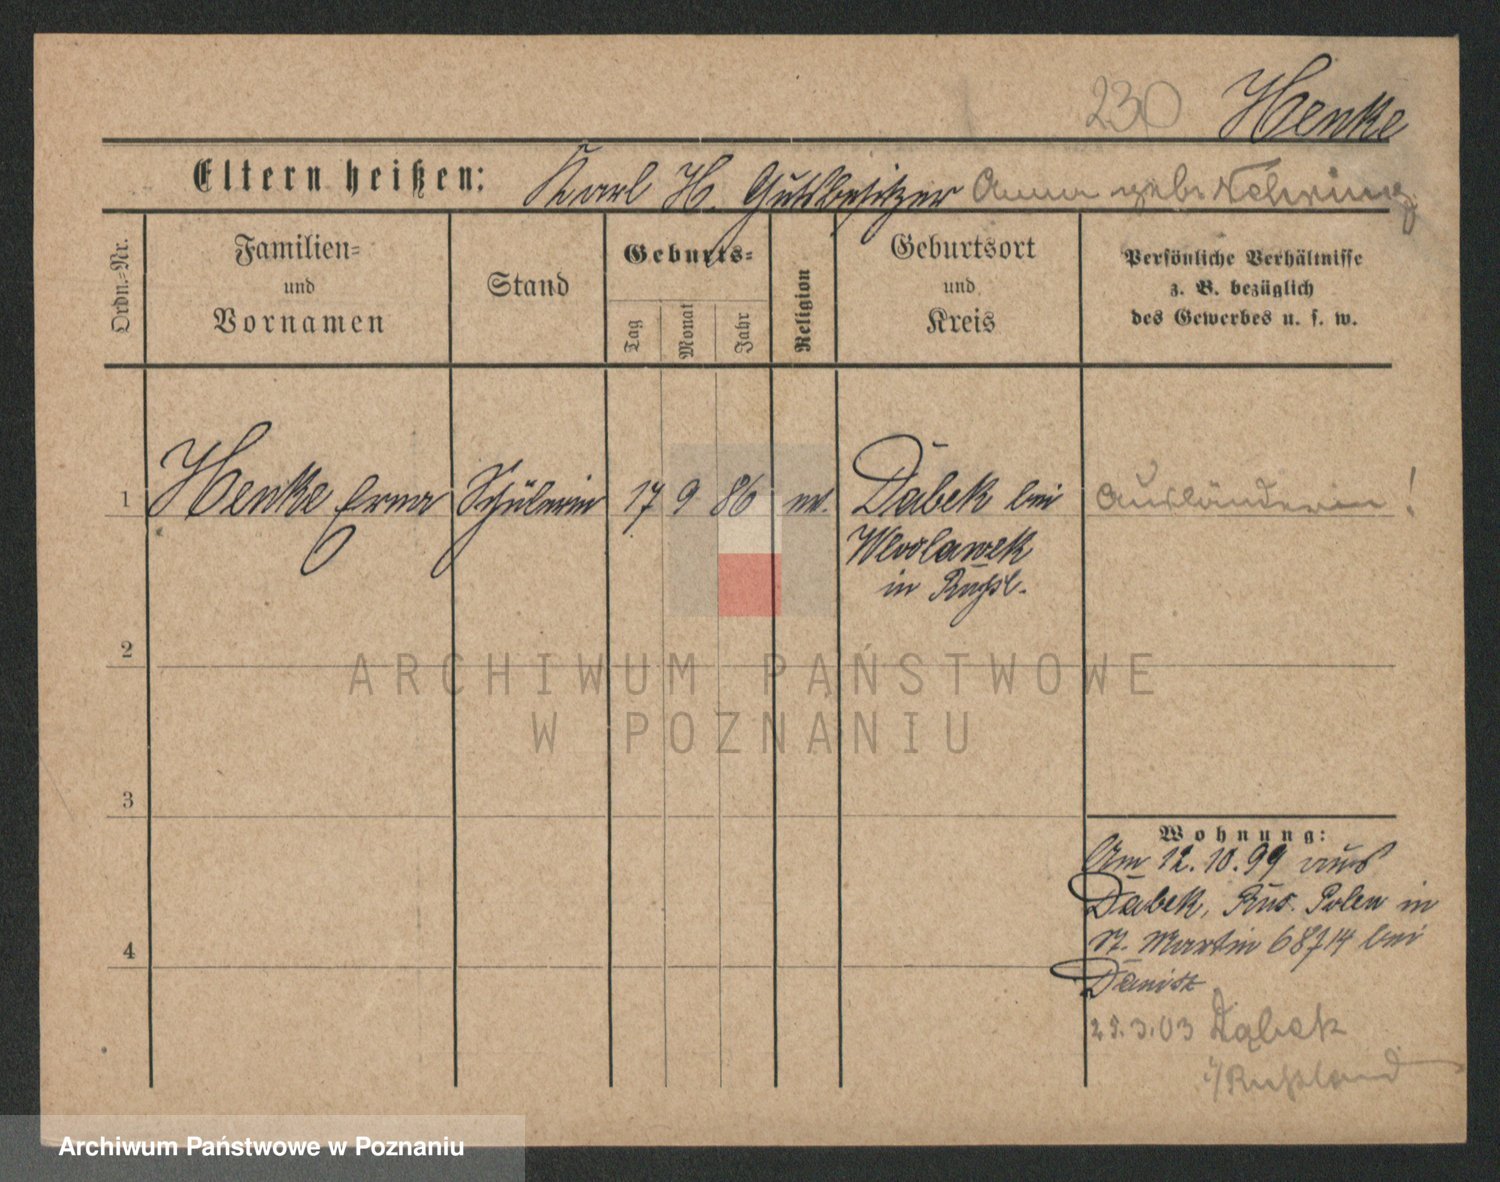 230 Henke
Eltern heißen: Karl H. Gutsbesitzer Anna geb. Nehring
Ordn.=Nr.
Familien=
und
Vornamen
Stand
Geburts=
Tag
Monat
Jahr
Religion
Geburtsort
und
Kreis
Persönliche Verhältnisse
z. B. bezüglich
des Gewerbes u. s. w.
1 Henke Erna Schülerin 17 9 86 ev. Dabek bei Ausländerin!
Wloclawek
in Rußl.
2
ARCHIWUM PAŃSTWOWE
W POZNANIU
3
Wohnung:
Am 12.10.99 aus
Dabek, Rus. Polen in
St. Martin 68/14 bei
4
25.3.03 Dąbek
i/Rußland
Archiwum Państwowe w Poznaniu